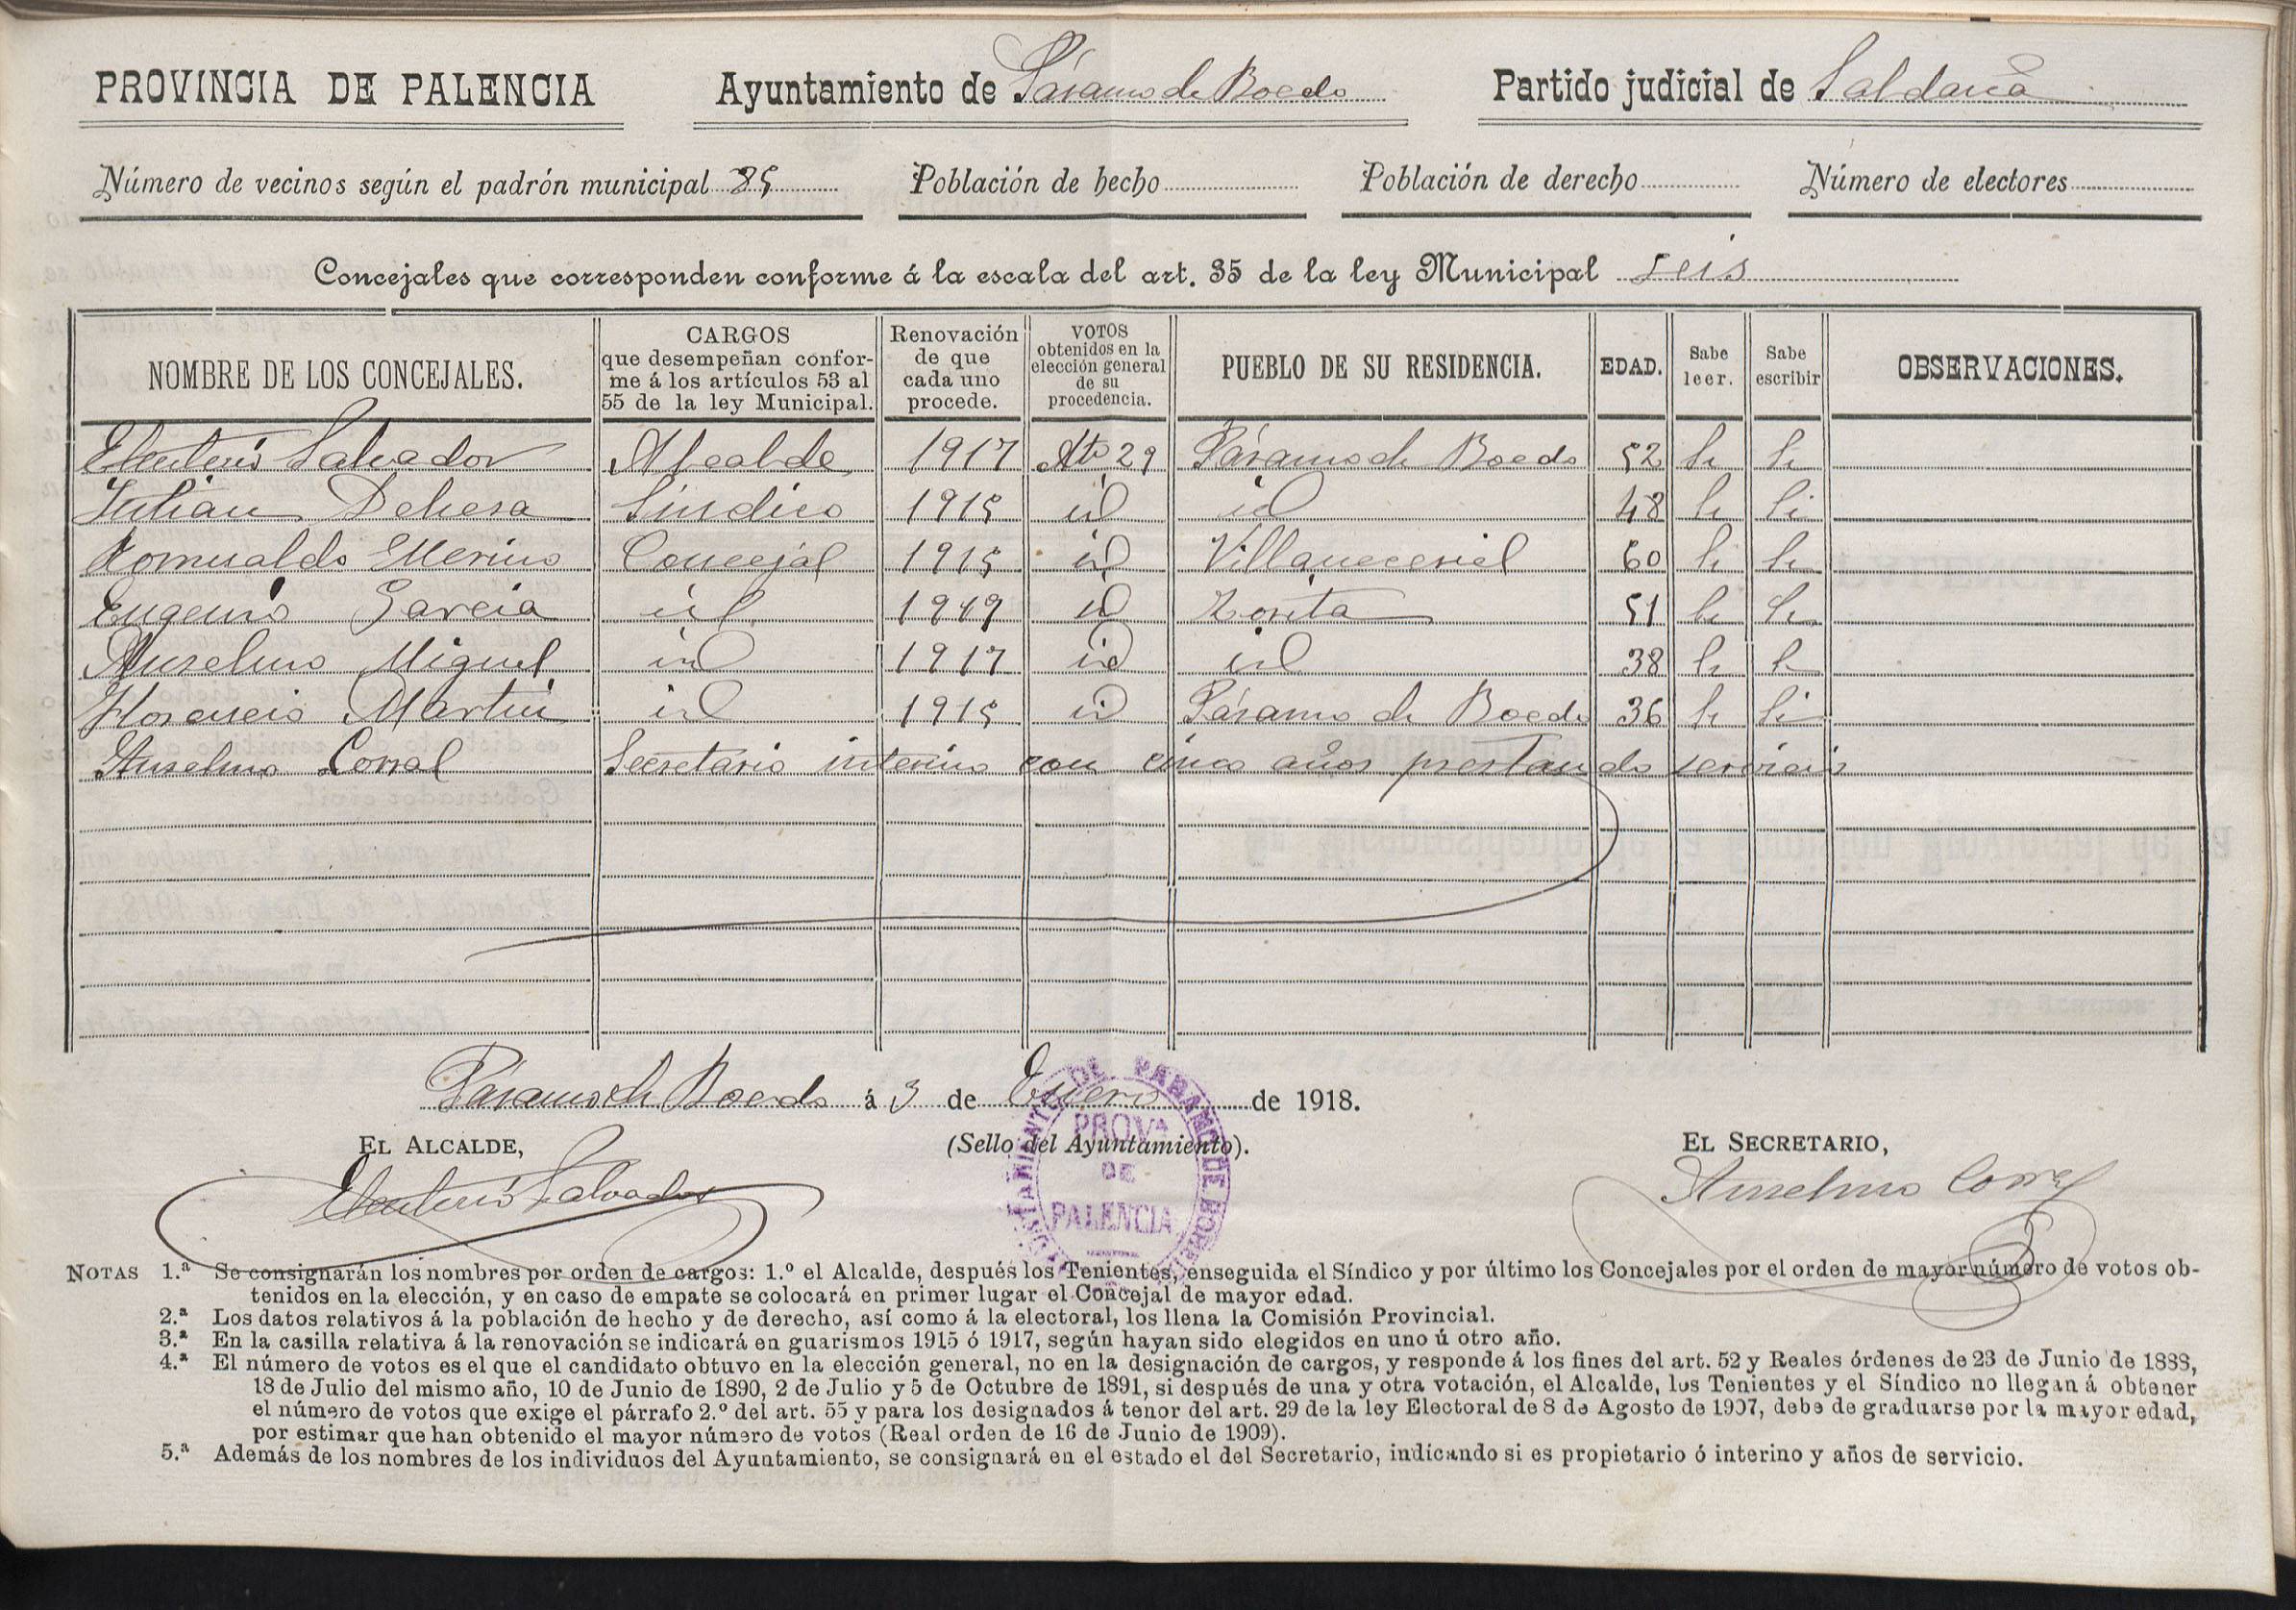 PROVINCIA DE PALENCIA Ayuntamiento de Páramo de Boedo Partido judicial de Saldaña
Número de vecinos según el padrón municipal 85 Población de hecho Población de derecho Número de electores
Concejales que corresponden conforme á la escala del art. 35 de la ley Municipal seis
NOMBRE DE LOS CONCEJALES. CARGOS que desempeñan confor-me á los artículos 53 al 55 de la ley Municipal. Renovación de que cada uno procede. VOTOS obtenidos en la elección general de su procedencia. PUEBLO DE SU RESIDENCIA. EDAD. Sabe leer. Sabe escribir OBSERVACIONES.
Eleuterio Salvador Alcalde 1917 Arto 29 Páramo de Boedo 52 Si Si
Julian Dehesa Sindico 1915 id id 48 Si Si
Romualdo Merino Concejal 1915 id Villaneceriel 60 Si Si
Eugenio Garcia id 1919 id Zorita 51 Si Si
Anselmo Miguel id 1917 id id 38 Si Si
Florencio Martin id 1915 id Páramo de Boedo 36 Si Si
Anselmo Corral Secretario interino con cinco años prestando servicio
Páramo de Boedo á 3 de Enero de 1918.
EL ALCALDE, (Sello del Ayuntamiento). EL SECRETARIO,
Eleuterio Salvador Anselmo Corral
AYUNTAMIENTO DE PARAMO DE BOEDO
PROVª
DE
PALENCIA
NOTAS 1.ª Se consignarán los nombres por orden de cargos: 1.º el Alcalde, después los Tenientes, enseguida el Síndico y por último los Concejales por el orden de mayor número de votos ob-
tenidos en la elección, y en caso de empate se colocará en primer lugar el Concejal de mayor edad.
2.ª Los datos relativos á la población de hecho y de derecho, así como á la electoral, los llena la Comisión Provincial.
3.ª En la casilla relativa á la renovación se indicará en guarismos 1915 ó 1917, según hayan sido elegidos en uno ú otro año.
4.ª El número de votos es el que el candidato obtuvo en la elección general, no en la designación de cargos, y responde á los fines del art. 52 y Reales órdenes de 23 de Junio de 1888,
18 de Julio del mismo año, 10 de Junio de 1890, 2 de Julio y 5 de Octubre de 1891, si después de una y otra votación, el Alcalde, los Tenientes y el Síndico no llegan á obtener
el número de votos que exige el párrafo 2.º del art. 55 y para los designados á tenor del art. 29 de la ley Electoral de 8 de Agosto de 1907, debe de graduarse por la mayor edad,
por estimar que han obtenido el mayor número de votos (Real orden de 16 de Junio de 1909).
5.ª Además de los nombres de los individuos del Ayuntamiento, se consignará en el estado el del Secretario, indicando si es propietario ó interino y años de servicio.